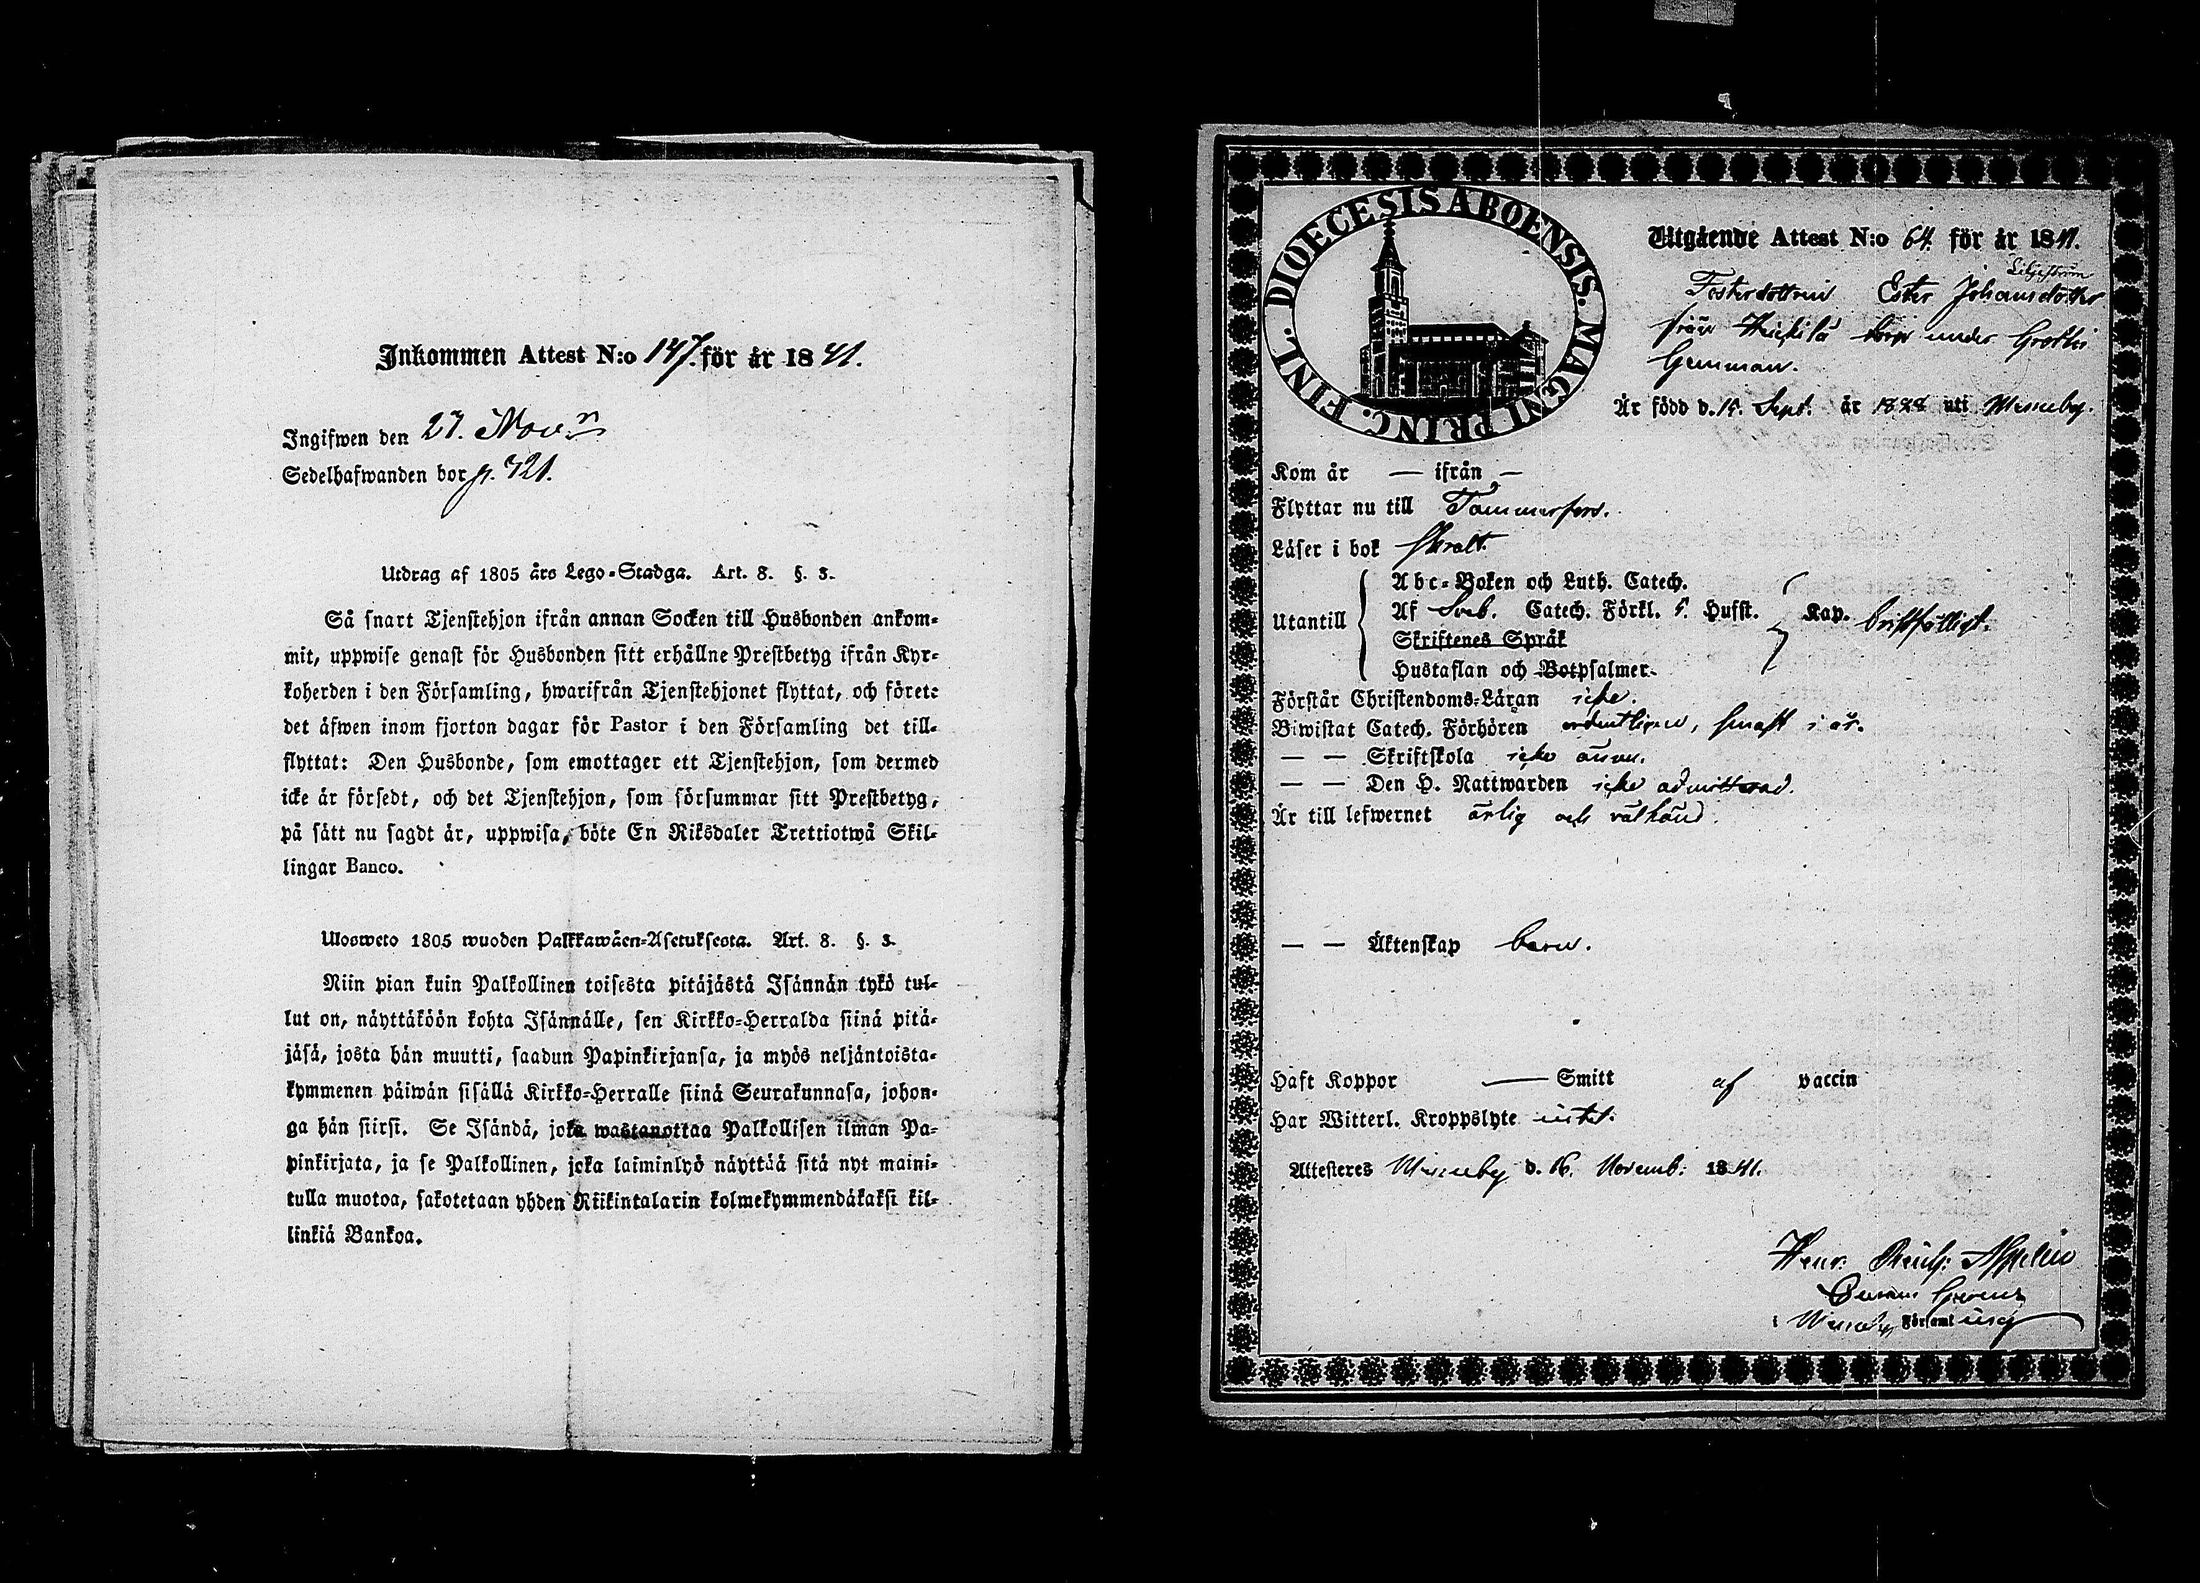 Inkommen Attest N:o 147. för år 1841.
Ingifwen den 27. Nov:r
Sedelhafwanden bor p. 721.
Utdrag af 1805 års Lego-Stadga. Art. 8. §. 3.
Så snart Tjenstehjon ifrån annan Socken till Husbonden ankom-
mit, uppwise genast för Husbonden sitt erhållne Prestbetyg ifrån Kyr-
koherden i den Församling, hwarifrån Tjenstehjonet flyttat, och förete
det äfwen inom fjorton dagar för Pastor i den Församling det till-
flyttat: Den Husbonde, som emottager ett Tjenstehjon, som dermed
icke är försedt, och det Tjenstehjon, som försummar sitt Prestbetyg,
på sätt nu sagdt är, uppwisa, böte En Riksdaler Trettiotwå Skil-
lingar Banco.
Ulosweto 1805 wuoden Palkkawäen-Asetuksesta. Art. 8. §. 3.
Niin pian kuin Palkollinen toisesta pitäjästä Isännän tykö tul-
lut on, näyttäköön kohta Isännälle, sen Kirkko-Herralda siinä pitä-
jäsä, josta hän muutti, saadun Papinkirjansa, ja myös neljäntoista-
kymmenen päiwän sisällä Kirkko-Herralle siinä Seurakunnasa, johon-
ga hän siirsi. Se Isändä, joka wastanottaa Palkollisen ilman Pa-
pinkirjata, ja se Palkollinen, joka laiminlyö näyttää sitä nyt maini-
tulla muotoa, sakotetaan yhden Riikintalarin kolmekymmendäkaksi kil-
linkiä Bankoa.
DIOECESIS ABOENSIS. MAGNI PRINC. FINL.
Utgående Attest N:o 64. för år 1841.
Fosterdottren Ester Johansdotter
från under
Är född d. 15. Sept. år 1828 uti
Kom år — ifrån —
Flyttar nu till Tammerfors.
Läser i bok svalt.
Utantill
Abc-Boken och Luth. Catech.
Af Sveb. Catech. Förkl. 5. Hufst.
Skriftenes Språk
Hustaflan och Botpsalmer.
Kap. bristfälligt.
Förstår Christendoms-Läran icke.
Biwistat Catech. Förhören ordentligen, senast i år.
— — Skriftskola icke ännu.
— — Den H. Nattwarden icke admitterad.
Är till lefwernet ärlig och välkänd.
— — Äktenskap barn.
Haft Koppor — Smitt af vaccin
Har Witterl. Kroppslyte intet.
Attesteres d. 16. Novemb: 1841.
Henr.
i Församling